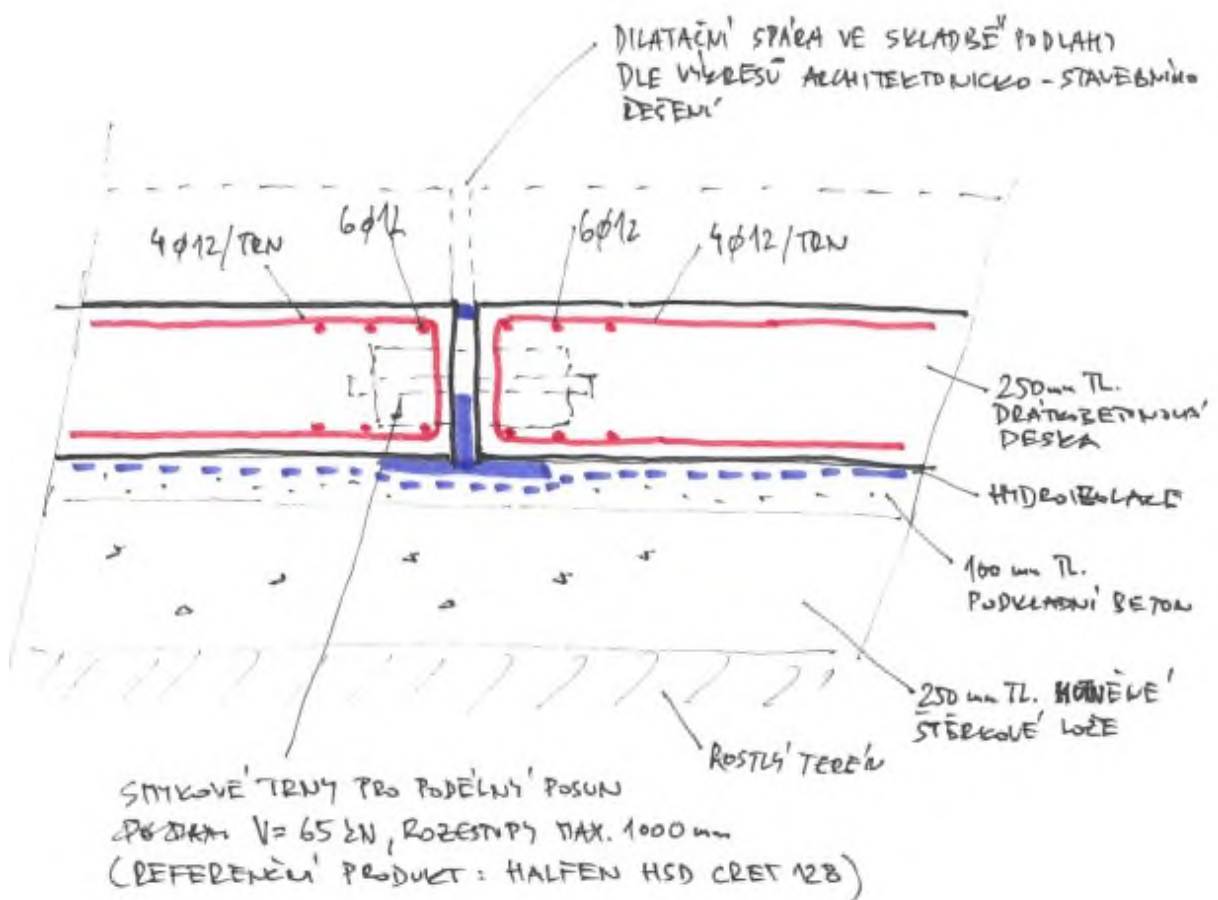 DILATAČNÍ SPÁRA VE SKLADBĚ PODLAHY
DLE VÝKRESŮ ARCHITEKTONICKO - STAVEBNÍHO
ŘEŠENÍ
4ø12/TRN
6ø12
6ø12
4ø12/TRN
250mm TL.
DRÁTKOBETONOVÁ
DESKA
HYDROIZOLACE
100 mm TL.
PODKLADNÍ BETON
250 mm TL. HUTNĚNÉ
ŠTĚRKOVÉ LOŽE
ROSTLÝ TERÉN
SMYKOVÉ TRNY PRO PODÉLNÝ POSUN
V= 65 kN, ROZESTUPY MAX. 1000 mm
(REFERENČNÍ PRODUKT : HALFEN HSD CRET 128)